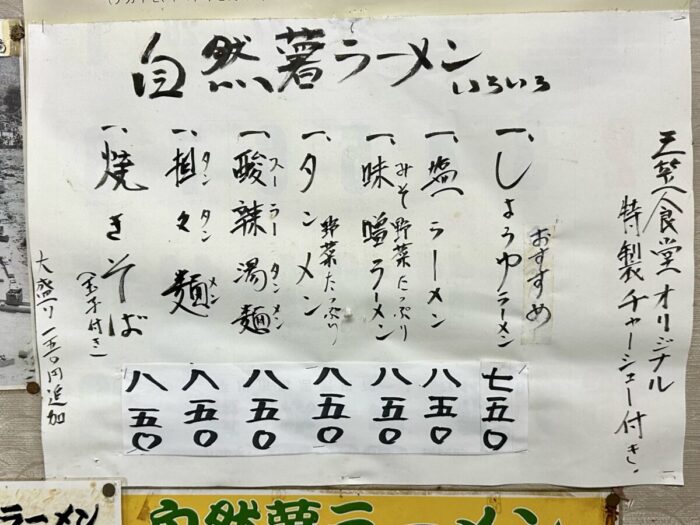 自然薯ラーメン
いろいろ
三笠食堂オリジナル
特製チャーシュー付き
おすすめ
一、しょうゆラーメン 七五〇
一、塩ラーメン 八五〇
一、味噌ラーメン 八五〇
みそ野菜たっぷり
一、タンメン 八五〇
野菜たっぷり
一、酸辣湯麺 八五〇
スーラータンメン
一、担々麺 八五〇
タンタンメン
一、焼きそば 八五〇
(玉子付き)
大盛り一五〇円追加
ラーメン
自然薯ラーメン